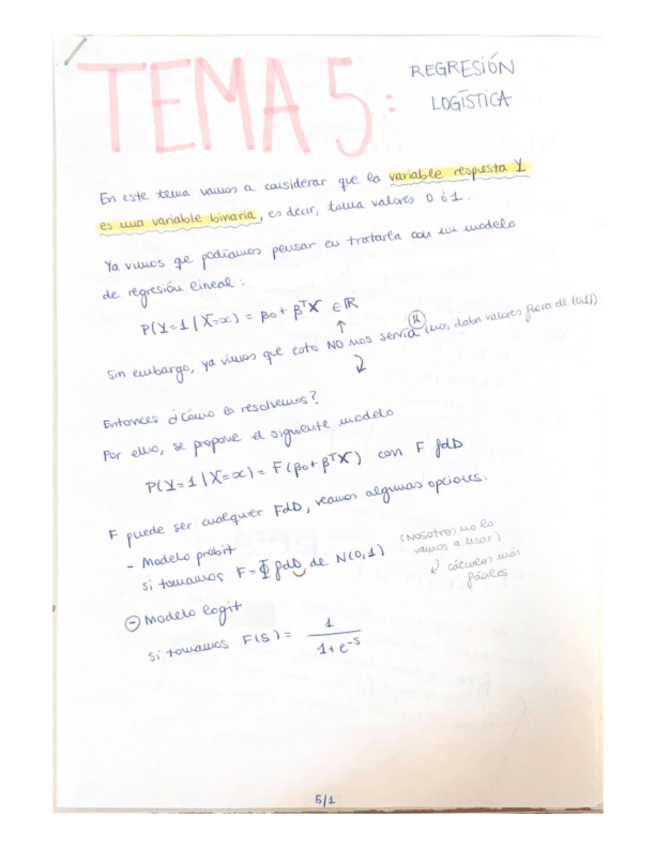 TEMA 5:
REGRESIÓN
LOGÍSTICA
En este tema vamos a considerar que la variable respuesta Y
es una variable binaria, es decir, toma valores 0 ó 1.
Ya vimos que podíamos pensar en tratarla con un modelo
de regresión lineal:
P(Y=1 | X=x) = β0 + βᵀX ∈ ℝ
↑
Sin embargo, ya vimos que esto NO nos servía (nos daba valores fuera de (0,1)).
Entonces ¿Cómo lo resolvemos?
Por ello, se propone el siguiente modelo
P(Y=1 | X=x) = F(β0 + βᵀX) con F fdD
F puede ser cualquier FdD, veamos algunas opciones.
- Modelo probit
si tomamos F=Φ fdD de N(0,1)
(Nosotros no lo
vamos a usar)
↓ cálculos más
fáciles
- Modelo logit
si tomamos F(s) = 1 / (1+e^-s)
5/1